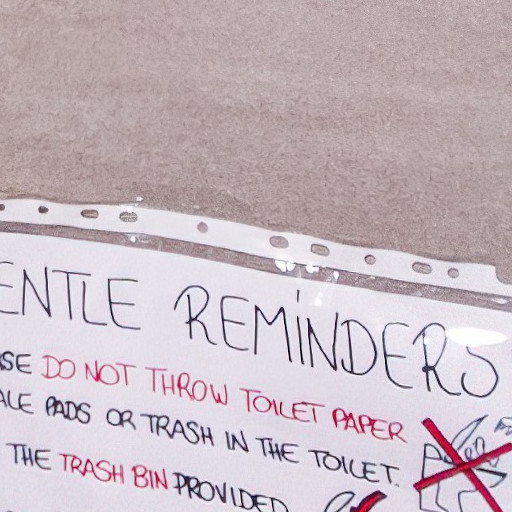 ENTLE REMINDERS
SE DO NOT THROW TOILET PAPER
ALE PADS OR TRASH IN THE TOILET.
THE TRASH BIN PROVIDED